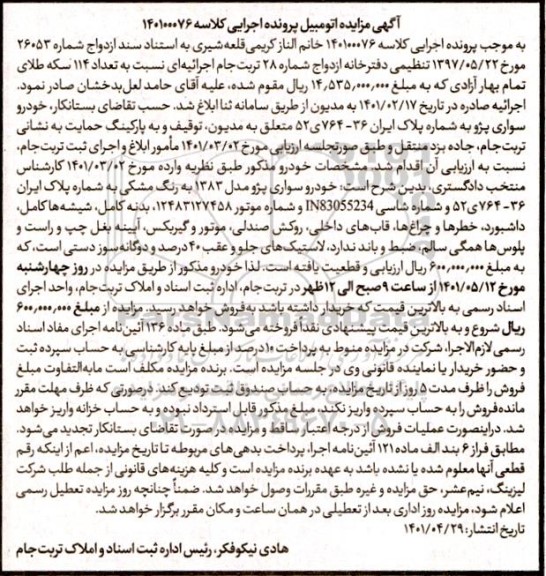 آگهی مزایده اتومبیل پرونده اجرایی کلاسه ۱۴۰۱۰۰۰۷۶
به موجب پرونده اجرایی کلاسه ۱۴۰۱۰۰۰۷۶ خانم الناز کریمی‌قلعه‌شیری به استناد سند ازدواج شماره ۲۶۰۵۳
مورخ ۱۳۹۷/۰۵/۲۲ تنظیمی دفترخانه ازدواج شماره ۲۸ تربت‌جام اجرائیه‌ای نسبت به تعداد ۱۱۴ سکه طلای
تمام بهار آزادی که به مبلغ ۱۴,۵۳۵,۰۰۰,۰۰۰ ریال مقوم شده، علیه آقای حامد لعل‌بدخشان صادر نمود.
اجرائیه صادره در تاریخ ۱۴۰۱/۰۲/۱۷ به مدیون از طریق سامانه ثنا ابلاغ شد. حسب تقاضای بستانکار، خودرو
سواری پژو به شماره پلاک ایران ۳۶-۷۶۴ی۵۲ متعلق به مدیون، توقیف و به پارکینگ حمایت به نشانی
تربت‌جام، جاده یزد منتقل و طبق صورتجلسه ارزیابی مورخ ۱۴۰۱/۰۳/۰۲ مأمور ابلاغ و اجرای ثبت تربت‌جام،
نسبت به ارزیابی آن اقدام شد. مشخصات خودرو مذکور طبق نظریه وارده مورخ ۱۴۰۱/۰۳/۰۲ کارشناس
منتخب دادگستری، بدین شرح است: خودرو سواری پژو مدل ۱۳۸۳ به رنگ مشکی به شماره پلاک ایران
۳۶-۷۶۴ی۵۲ و شماره شاسی IN83055234 و شماره موتور ۱۲۴۸۳۱۲۷۴۵۸، بدنه کامل، شیشه‌ها کامل،
داشبورد، خطرها و چراغ‌ها، قاب‌های داخلی، روکش صندلی، موتور و گیربکس، آیینه بغل چپ و راست و
پلوس‌ها همگی سالم، ضبط و باند ندارد، لاستیک‌های جلو و عقب ۴۰ درصد و دوگانه‌سوز دستی است، که
به مبلغ ۶۰۰,۰۰۰,۰۰۰ ریال ارزیابی و قطعیت یافته است. لذا خودرو مذکور از طریق مزایده در روز چهارشنبه
مورخ ۱۴۰۱/۰۵/۱۲ از ساعت ۹ صبح الی ۱۲ ظهر در تربت‌جام، اداره ثبت اسناد و املاک تربت‌جام، واحد اجرای
اسناد رسمی به بالاترین قیمت که خریدار داشته باشد به‌فروش خواهد رسید. مزایده از مبلغ ۶۰۰,۰۰۰,۰۰۰
ریال شروع و به بالاترین قیمت پیشنهادی نقداً فروخته می‌شود. طبق ماده ۱۳۶ آئین‌نامه اجرای مفاد اسناد
رسمی لازم‌الاجرا، شرکت در مزایده منوط به پرداخت ۱۰ درصد از مبلغ پایه کارشناسی به حساب سپرده ثبت
و حضور خریدار یا نماینده قانونی وی در جلسه مزایده است. برنده مزایده مکلف است مابه‌التفاوت مبلغ
فروش را ظرف مدت ۵ روز از تاریخ مزایده، به حساب صندوق ثبت تودیع کند. درصورتی که ظرف مهلت مقرر
مانده‌فروش را به حساب سپرده واریز نکند، مبلغ مذکور قابل استرداد نبوده و به حساب خزانه واریز خواهد
شد. دراینصورت عملیات فروش از درجه اعتبار ساقط و مزایده در صورت تقاضای بستانکار تجدید می‌شود.
مطابق فراز ۶ بند الف ماده ۱۲۱ آئین‌نامه اجرا، پرداخت بدهی‌های مربوطه تا تاریخ مزایده، اعم از اینکه رقم
قطعی آنها معلوم شده یا نشده باشد به عهده برنده مزایده است و کلیه هزینه‌های قانونی از جمله طلب شرکت
لیزینگ، نیم‌عشر، حق مزایده و غیره طبق مقررات وصول خواهد شد. ضمناً چنانچه روز مزایده تعطیل رسمی
اعلام شود، مزایده روز اداری بعد از تعطیلی در همان ساعت و مکان مقرر برگزار خواهد شد.
تاریخ انتشار: ۱۴۰۱/۰۴/۲۹
هادی نیکوفکر، رئیس اداره ثبت اسناد و املاک تربت‌جام